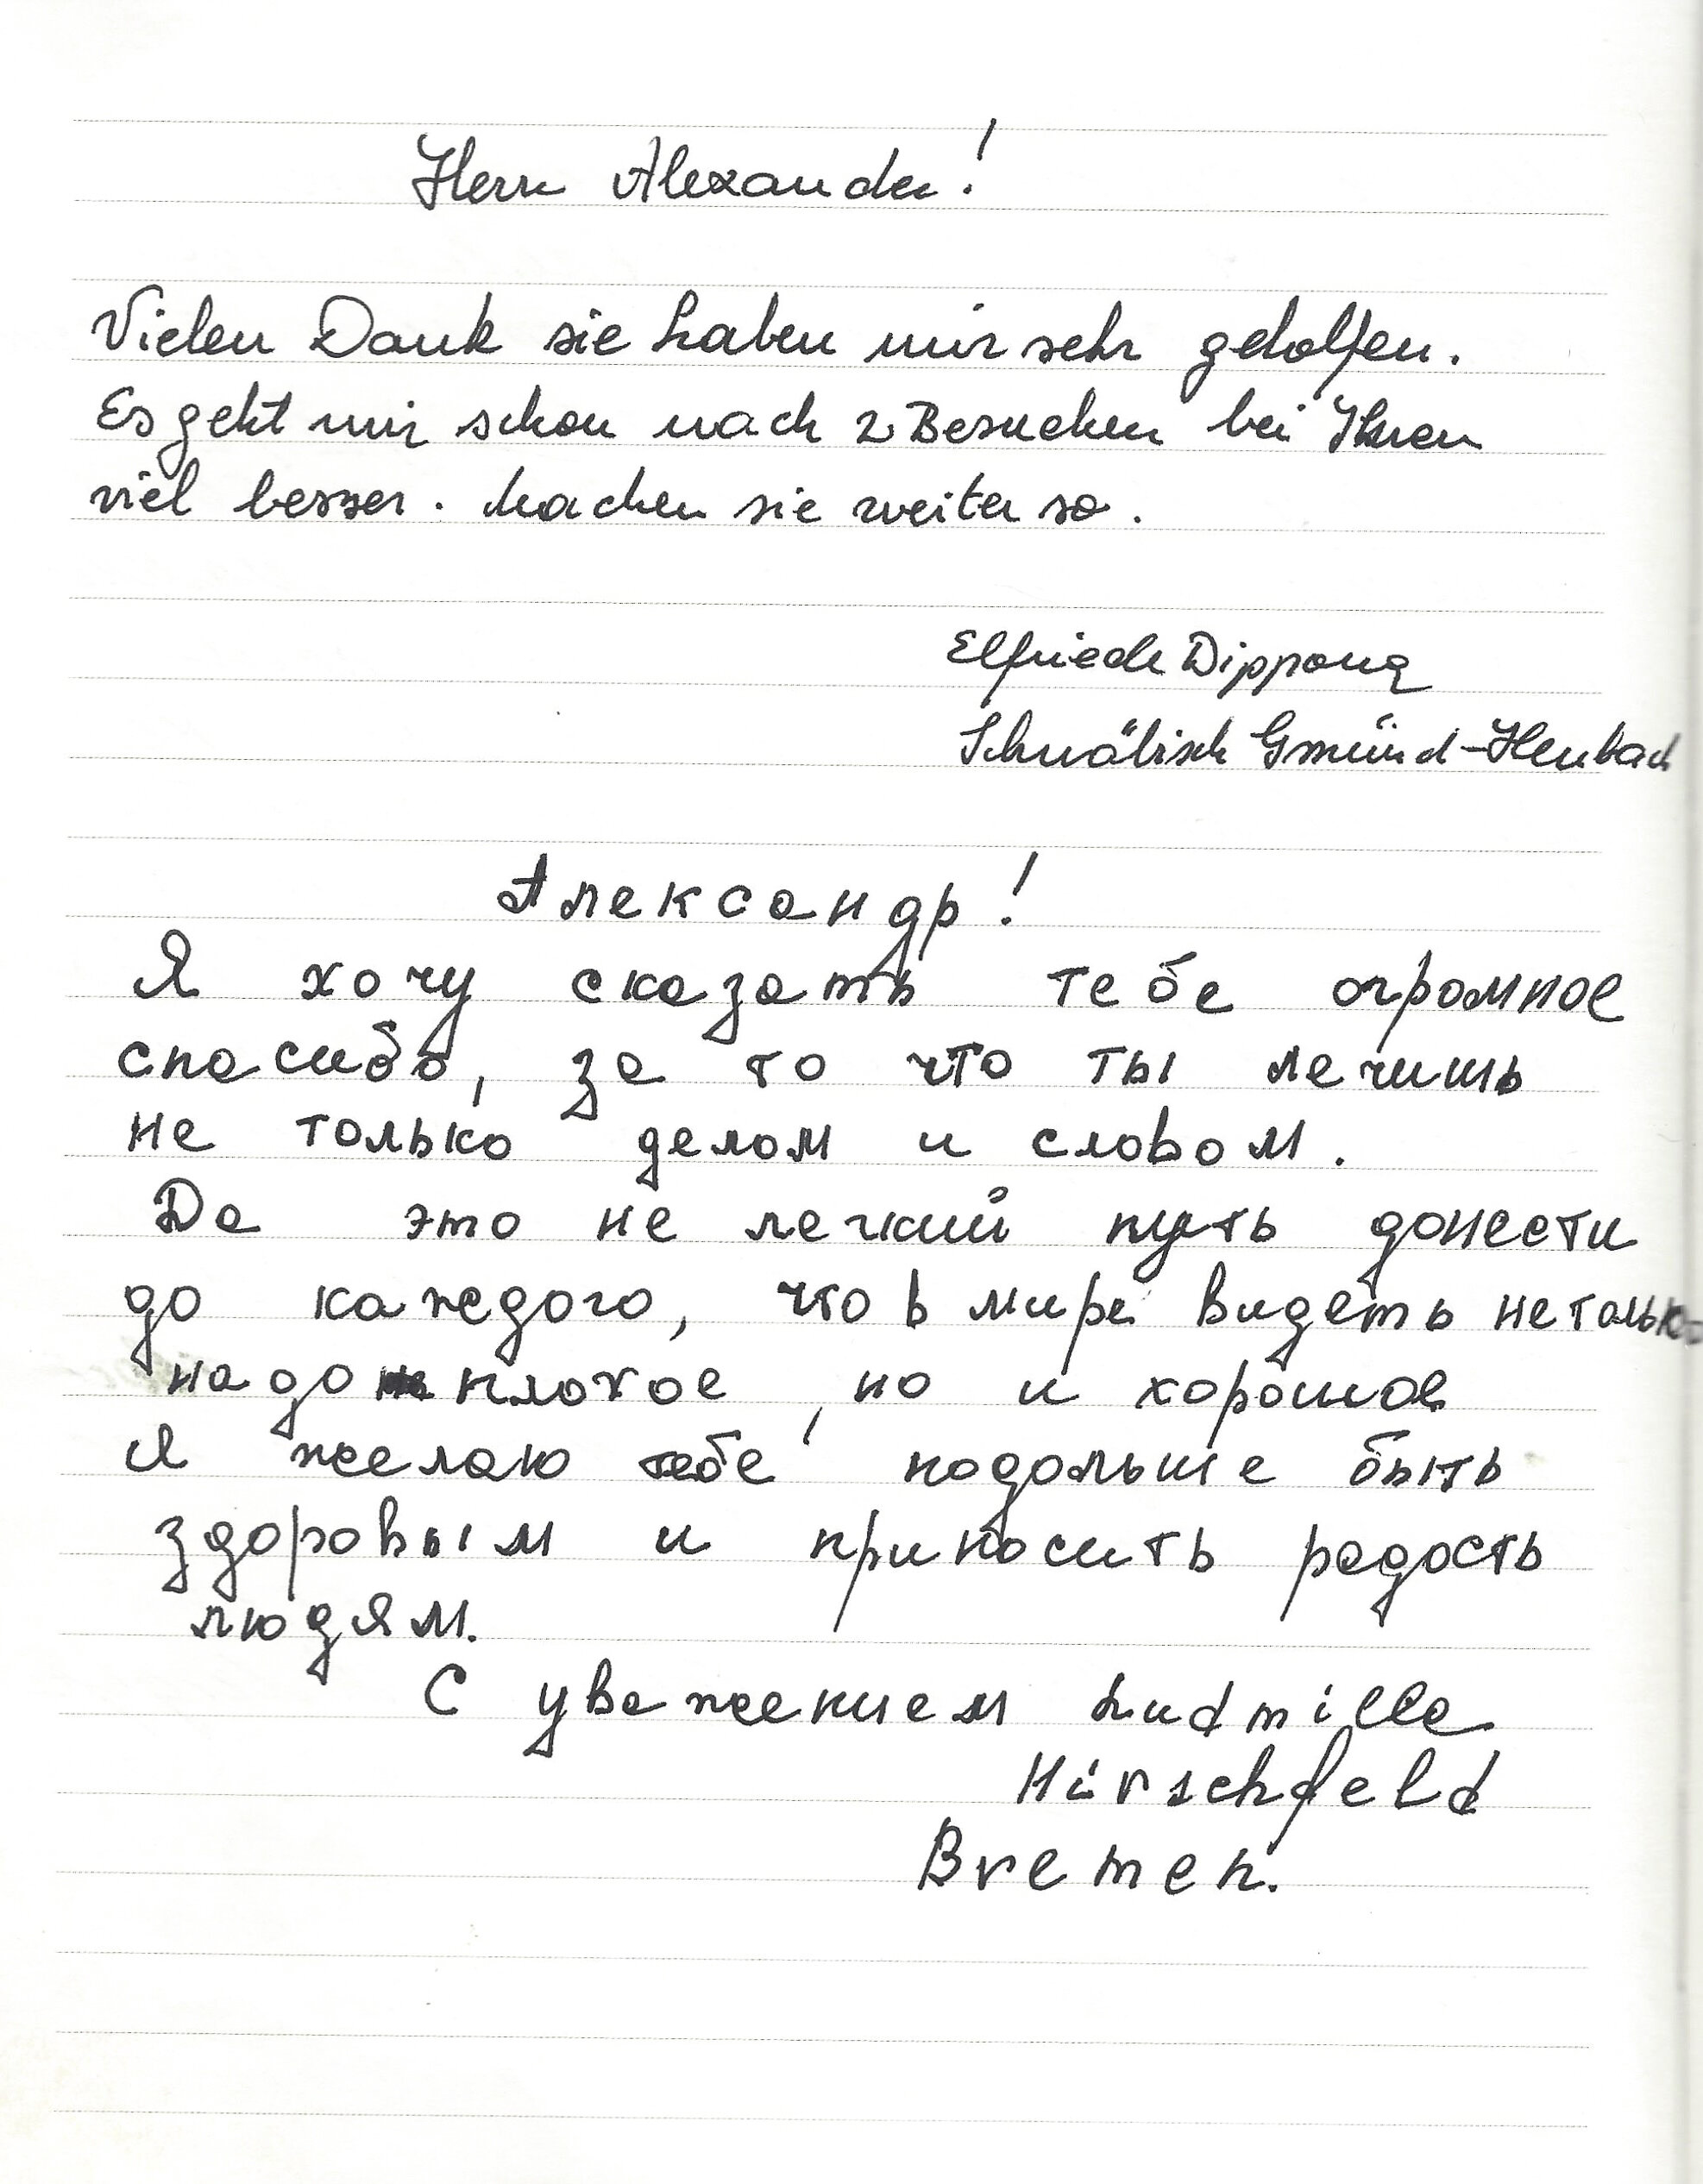 Herr Alexander!
Vielen Dank sie haben mir sehr geholfen.
Es geht mir schon nach 2 Besuchen bei Ihnen
viel besser. Machen sie weiter so.
Elfriede Dippong
Schwäbisch Gmünd-Heubach
Александр!
Я хочу сказать тебе огромное
спасибо, за то что ты лечишь
не только делом и словом.
Да это не легкий путь донести
до каждого, что в мире видеть не только
надо плохое, но и хорошое
Я желаю тебе подольше быть
здоровым и приносить радость
людям.
С уважением Ludmilla
Hirschfeld
Bremen.